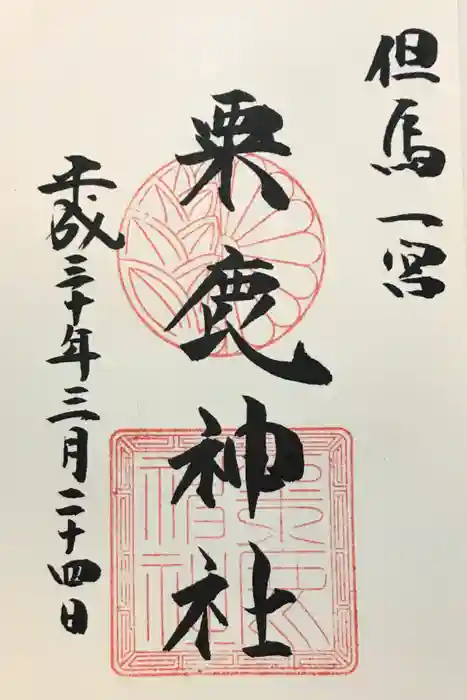 但馬一宮
粟鹿神社
平成三十年三月二十四日
粟鹿神社